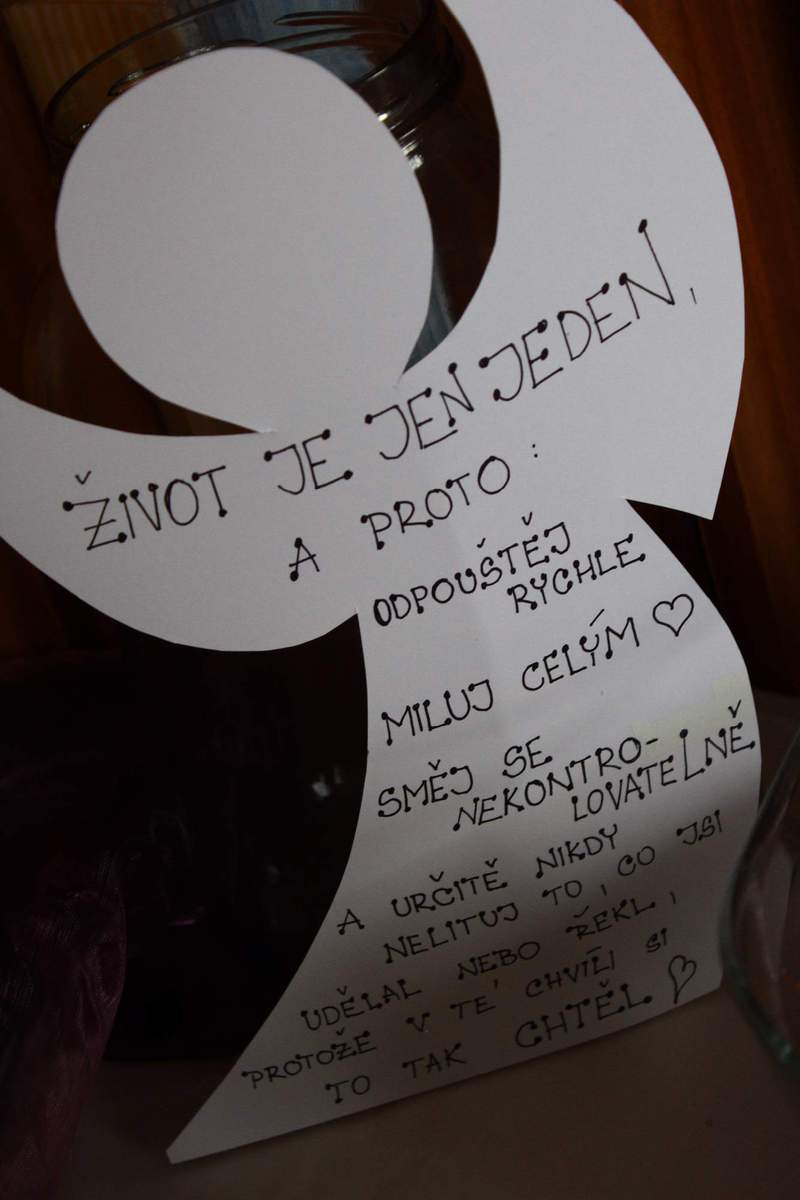 ŽIVOT JE JEN JEDEN,
A PROTO:
ODPOUŠTĚJ
RYCHLE
MILUJ CELÝM ♡
SMĚJ SE
NEKONTRO-
LOVATELNĚ
A URČITĚ NIKDY
NELITUJ TO, CO JSI
UDĚLAL NEBO ŘEKL,
PROTOŽE V TÉ CHVÍLI SI
TO TAK CHTĚL ♡